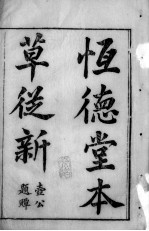 恆德堂本
草從新
壺公
題贉